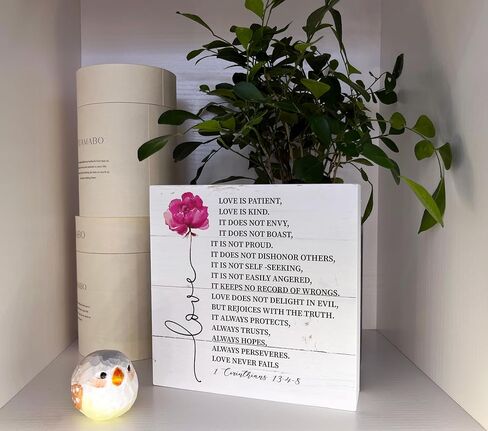 AMABO
ABO
love
LOVE IS PATIENT,
LOVE IS KIND.
IT DOES NOT ENVY,
IT DOES NOT BOAST,
IT IS NOT PROUD.
IT DOES NOT DISHONOR OTHERS,
IT IS NOT SELF -SEEKING,
IT IS NOT EASILY ANGERED,
IT KEEPS NO RECORD OF WRONGS.
LOVE DOES NOT DELIGHT IN EVIL,
BUT REJOICES WITH THE TRUTH.
IT ALWAYS PROTECTS,
ALWAYS TRUSTS,
ALWAYS HOPES,
ALWAYS PERSEVERES.
LOVE NEVER FAILS
1 Corinthians 13:4-8